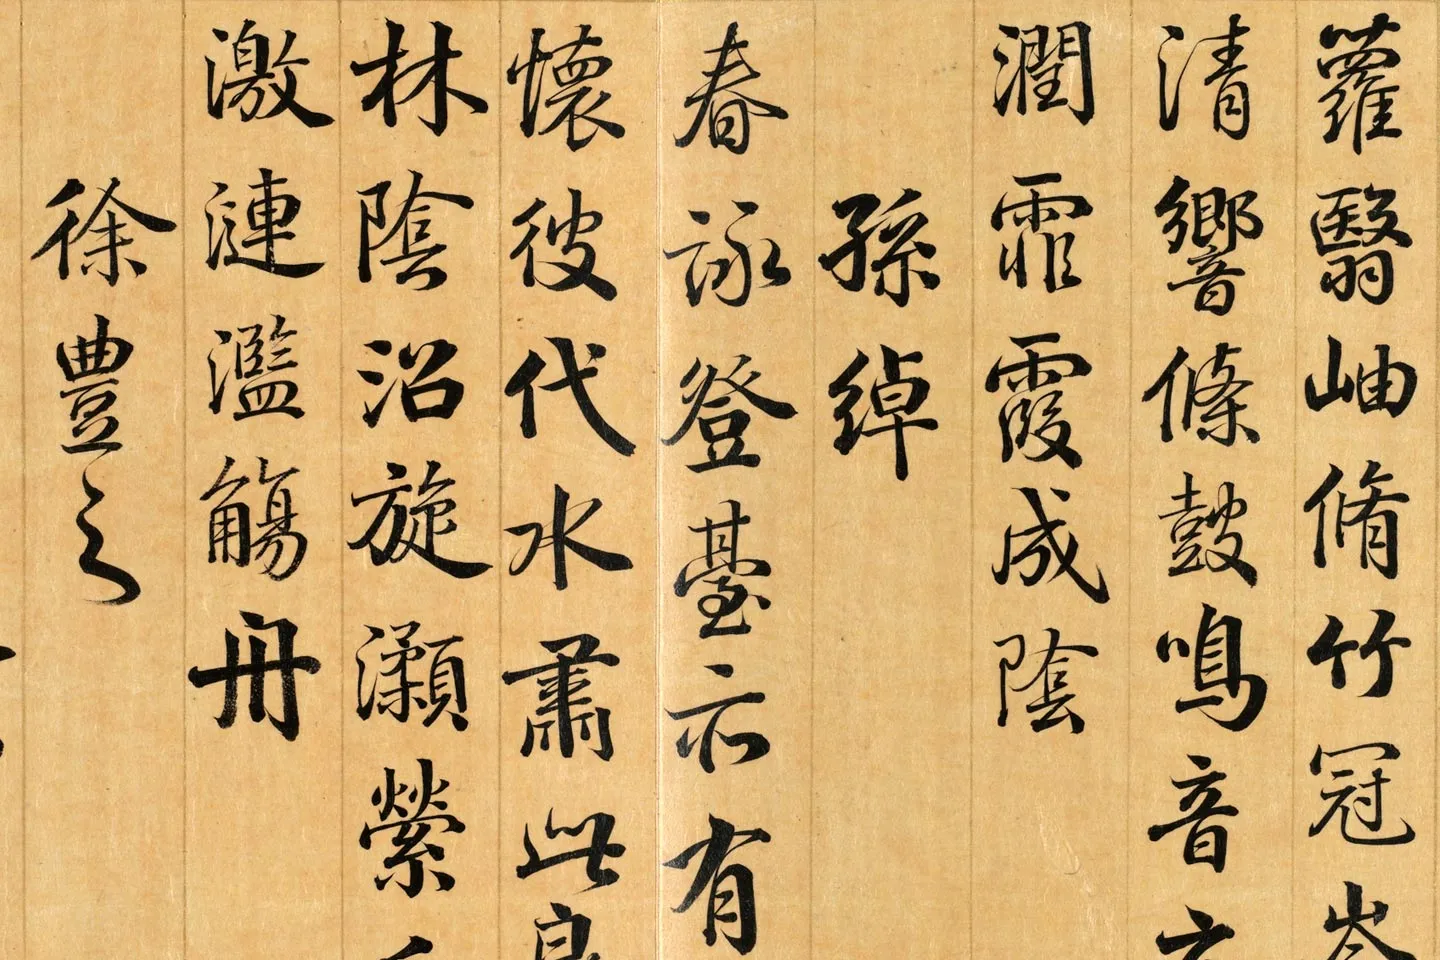 蘿翳岫脩竹冠岑
清響條鼓鳴音玄
潤霏霞成陰
孫綽
春詠登臺亦有
懷彼代水肅此良
林陰沼旋瀨縈
激漣濫觴舟
徐豐之